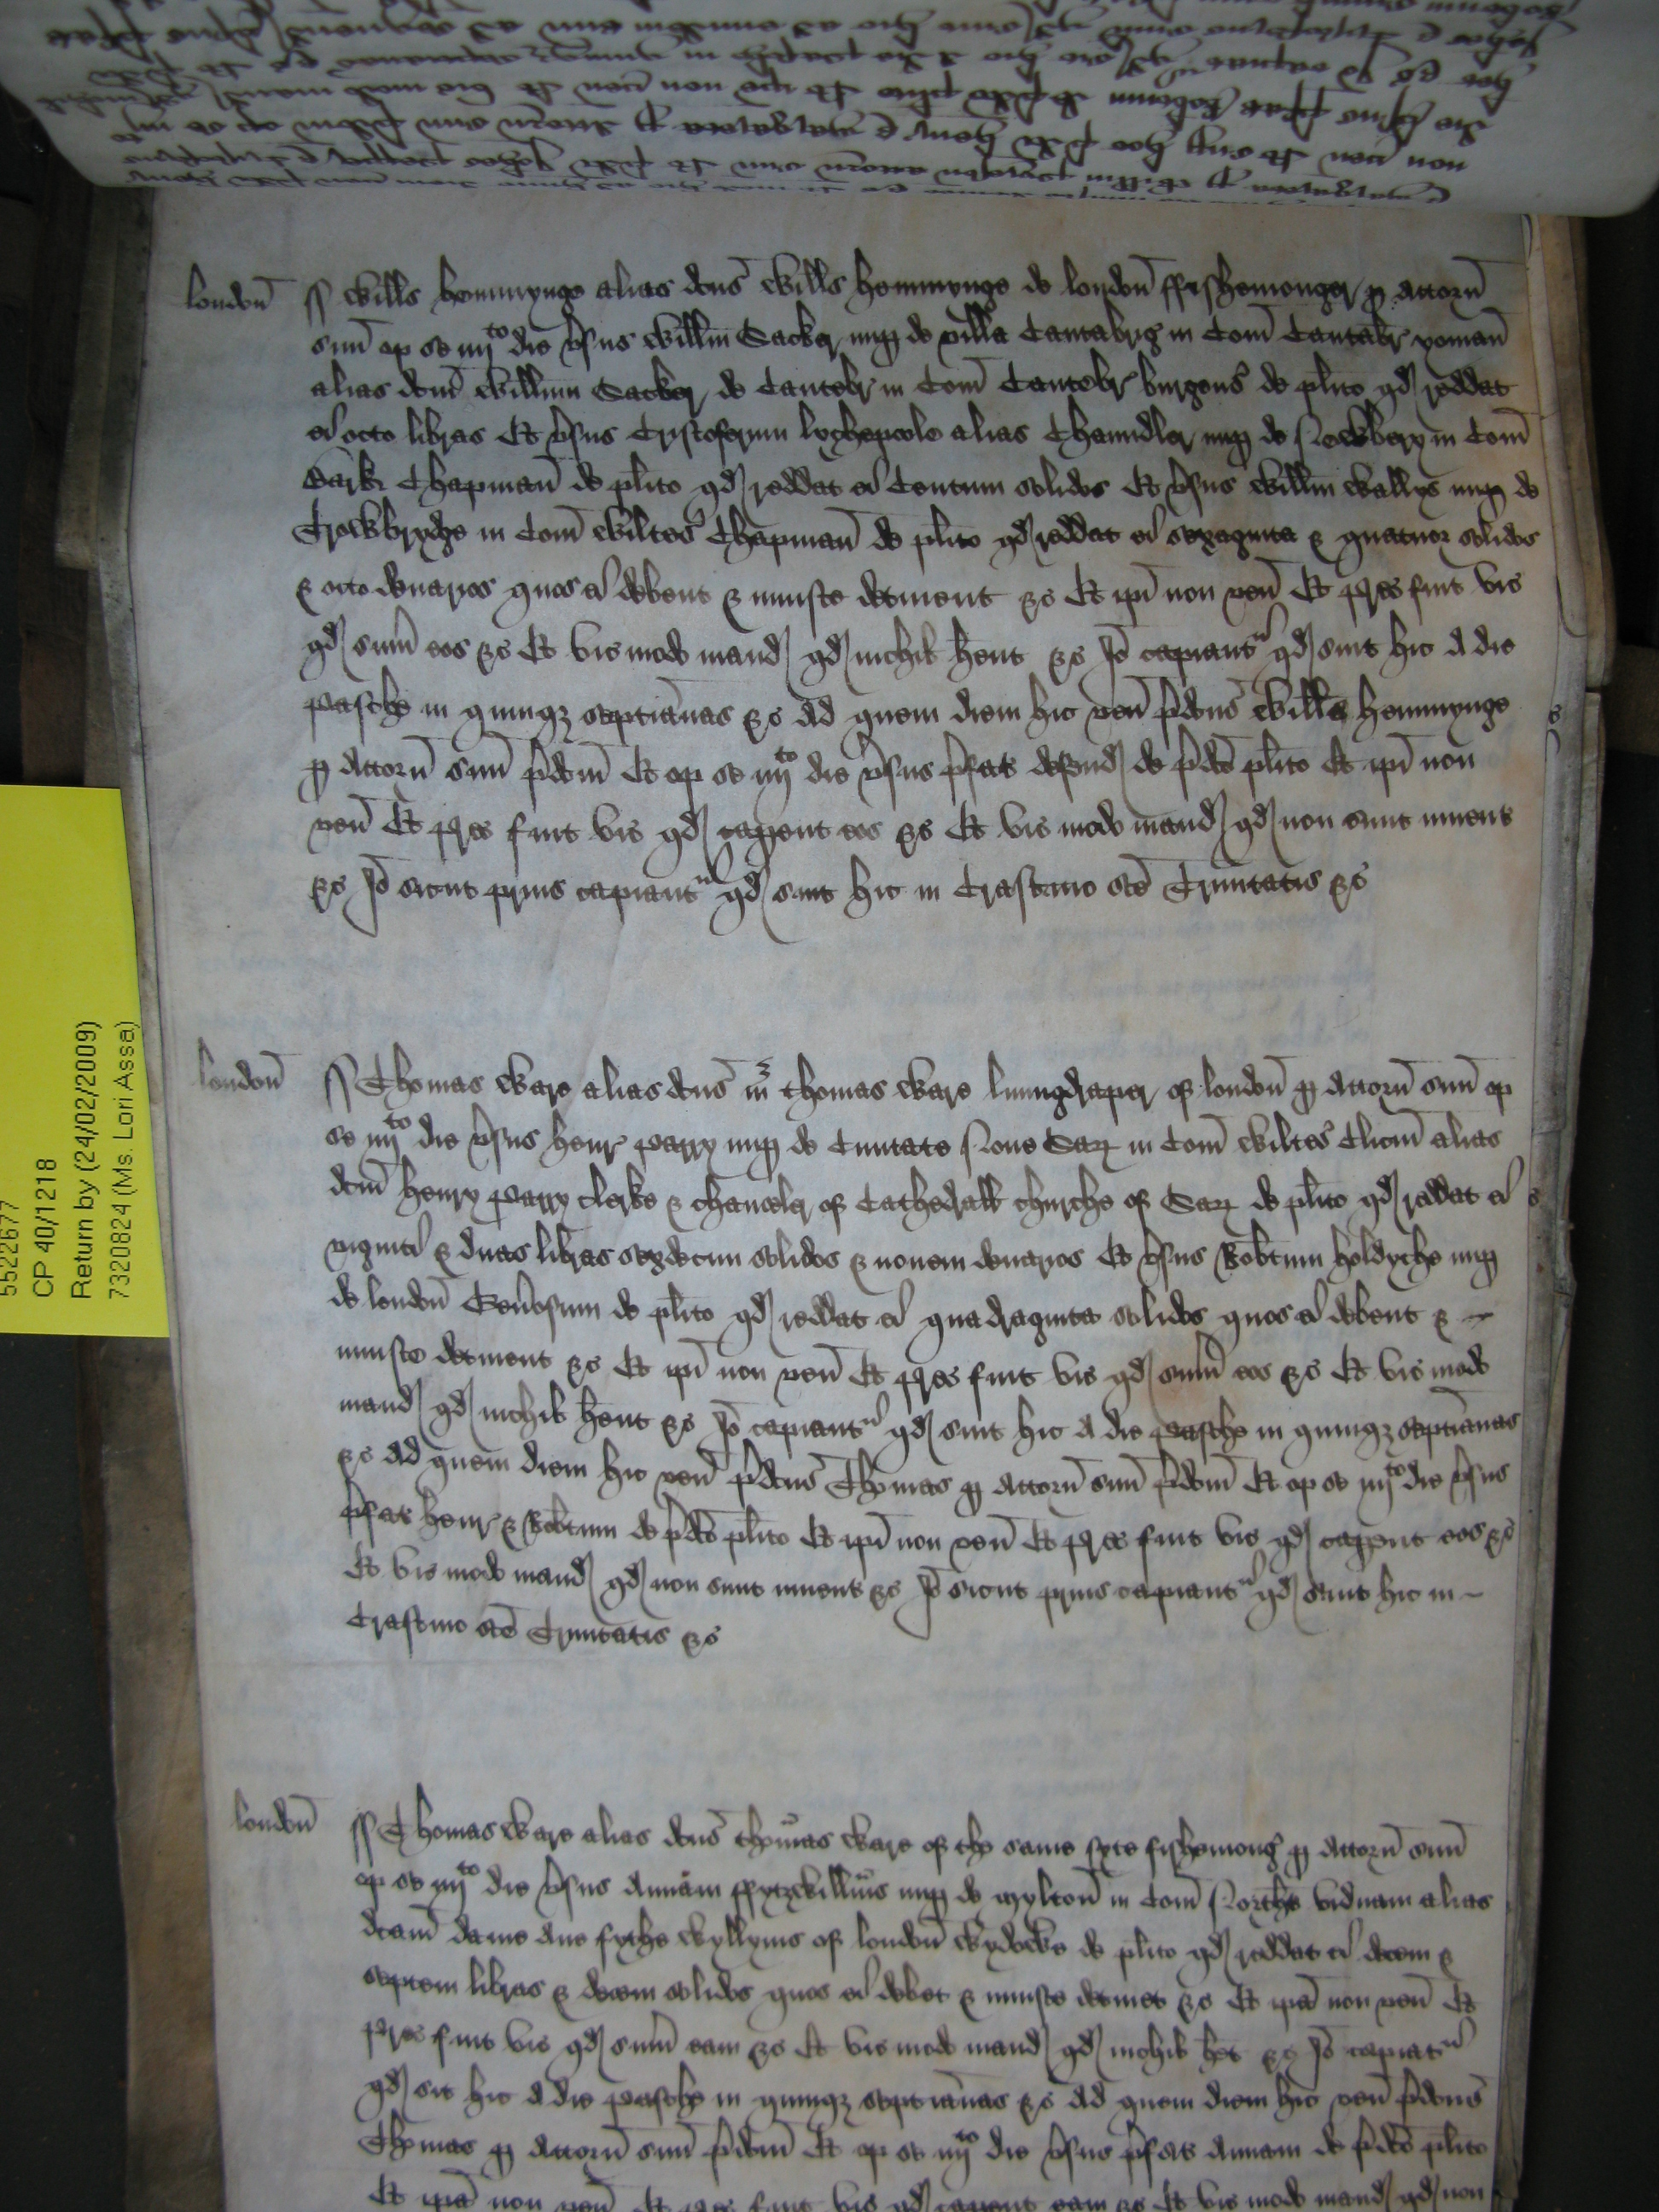 5522677
CP 40/1218
Return by (24/02/2009)
7320824 (Ms. Lori Assa)
londoñ
Wills hemmynge alias dcūs Wills hemmynge de londoñ ffisshemonger p attorñ
suū op se iiijto die vsus Willm Sacker nup de villa Cantabrig in Com̄ Cantabr yomañ
alias dcm̄ Willm̄ Sacker de Cantebr in Com̄ Cantebr burgens de plito qd reddat
ei octo libras Et vsus Cristoferum lychepole alias Chaundler nup de Newbery in Com̄
Berk Chapmañ de plito qd reddat ei Centum solidos Et vsus Willm Wallys nup de
Trowbrydge in Com̄ Wiltes Chapmañ de plito qd reddat ei sexaginta & quatuor solidos
& octo denarios quos ei debent & iniuste detinent &c Et ip̄i non veñ Et p̄c fuit vic
qd sum̄ eos &c Et vic modo mand qd nichil hent &c Iō capiantr qd sint hic A die
pasche in quinqz septiānas &c Ad quem diem hic veñ p̄dcūs Wills hemmynge
p Attorñ suū p̄dcm̄ Et op se iiijto die vsus p̄fat defend de p̄dco plito Et ip̄i non
veñ Et p̄c fuit vic qd caperet eos &c Et vic modo mand qd non sunt inuent
&c Iō sicut prius capiantr qd sint hic in Crastino sce Trinitatis &c
londoñ
Thomas Ware alias dcūs m thomas Ware lynnyngdraper of londoñ p Attorñ suū op
se iiijto die vsus henr Parry nup de Ciuitate Noue Sar in Com̄ Wiltes Clicum alias
dcm̄ henry Parry clerke & chanceler of Cathedrall churche of Sar de plito qd reddat ei
viginti & duas libras sexdecim solidos & nouem denarios Et vsus Robtum holdyche nup
de londoñ Genosum de plito qd reddat ei quadraginta solidos quos ei debent &
iniuste detinent &c Et ip̄i non veñ Et p̄c fuit vic qd sum̄ eos &c Et vic modo
mand qd nichil hent &c Iō capiantr qd sint hic A die pasche in quinqz septiānas
&c Ad quem diem hic veñ p̄dcūs Thomas p Attorñ suū p̄dcm̄ Et op se iiijto die vsus
p̄fat henr & Robtum de p̄dco plito Et ip̄i non veñ Et p̄c fuit vic qd caperet eos &c
Et vic modo mand qd non sunt inuent &c Iō sicut prius capiantr qd sint hic in
Crastino sce Trinitatis &c
londoñ
Thomas Ware alias dcūs thomas Ware of the same syte fishemong p Attorñ suū
op se iiijto die vsus Annam ffytzwillms nup de mylton in Com̄ Northt viduam alias
dcam̄ dame Ane fythe Wyllyms of londoñ Wydowe de plito qd reddat ei decem &
septem libras & decem solidos quos ei debet & iniuste detinet &c Et ip̄a non veñ Et
p̄c fuit vic qd sum̄ eam &c Et vic modo mand qd nichil het &c Iō capiatr
qd sit hic A die pasche in quinqz septiānas &c Ad quem diem hic veñ p̄dcūs
Thomas p Attorñ suū p̄dcm̄ Et op se iiijto die vsus p̄fat Annam de p̄dco plito
Et ip̄a non veñ Et p̄c fuit vic qd caperet eam &c Et vic modo mand qd non